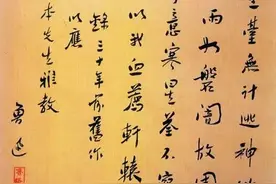 臺無計逃神
雨如磐闇故園
意寒星荃不察
以我血薦軒轅
錄三十年前舊作
以應
本先生雅教
魯迅